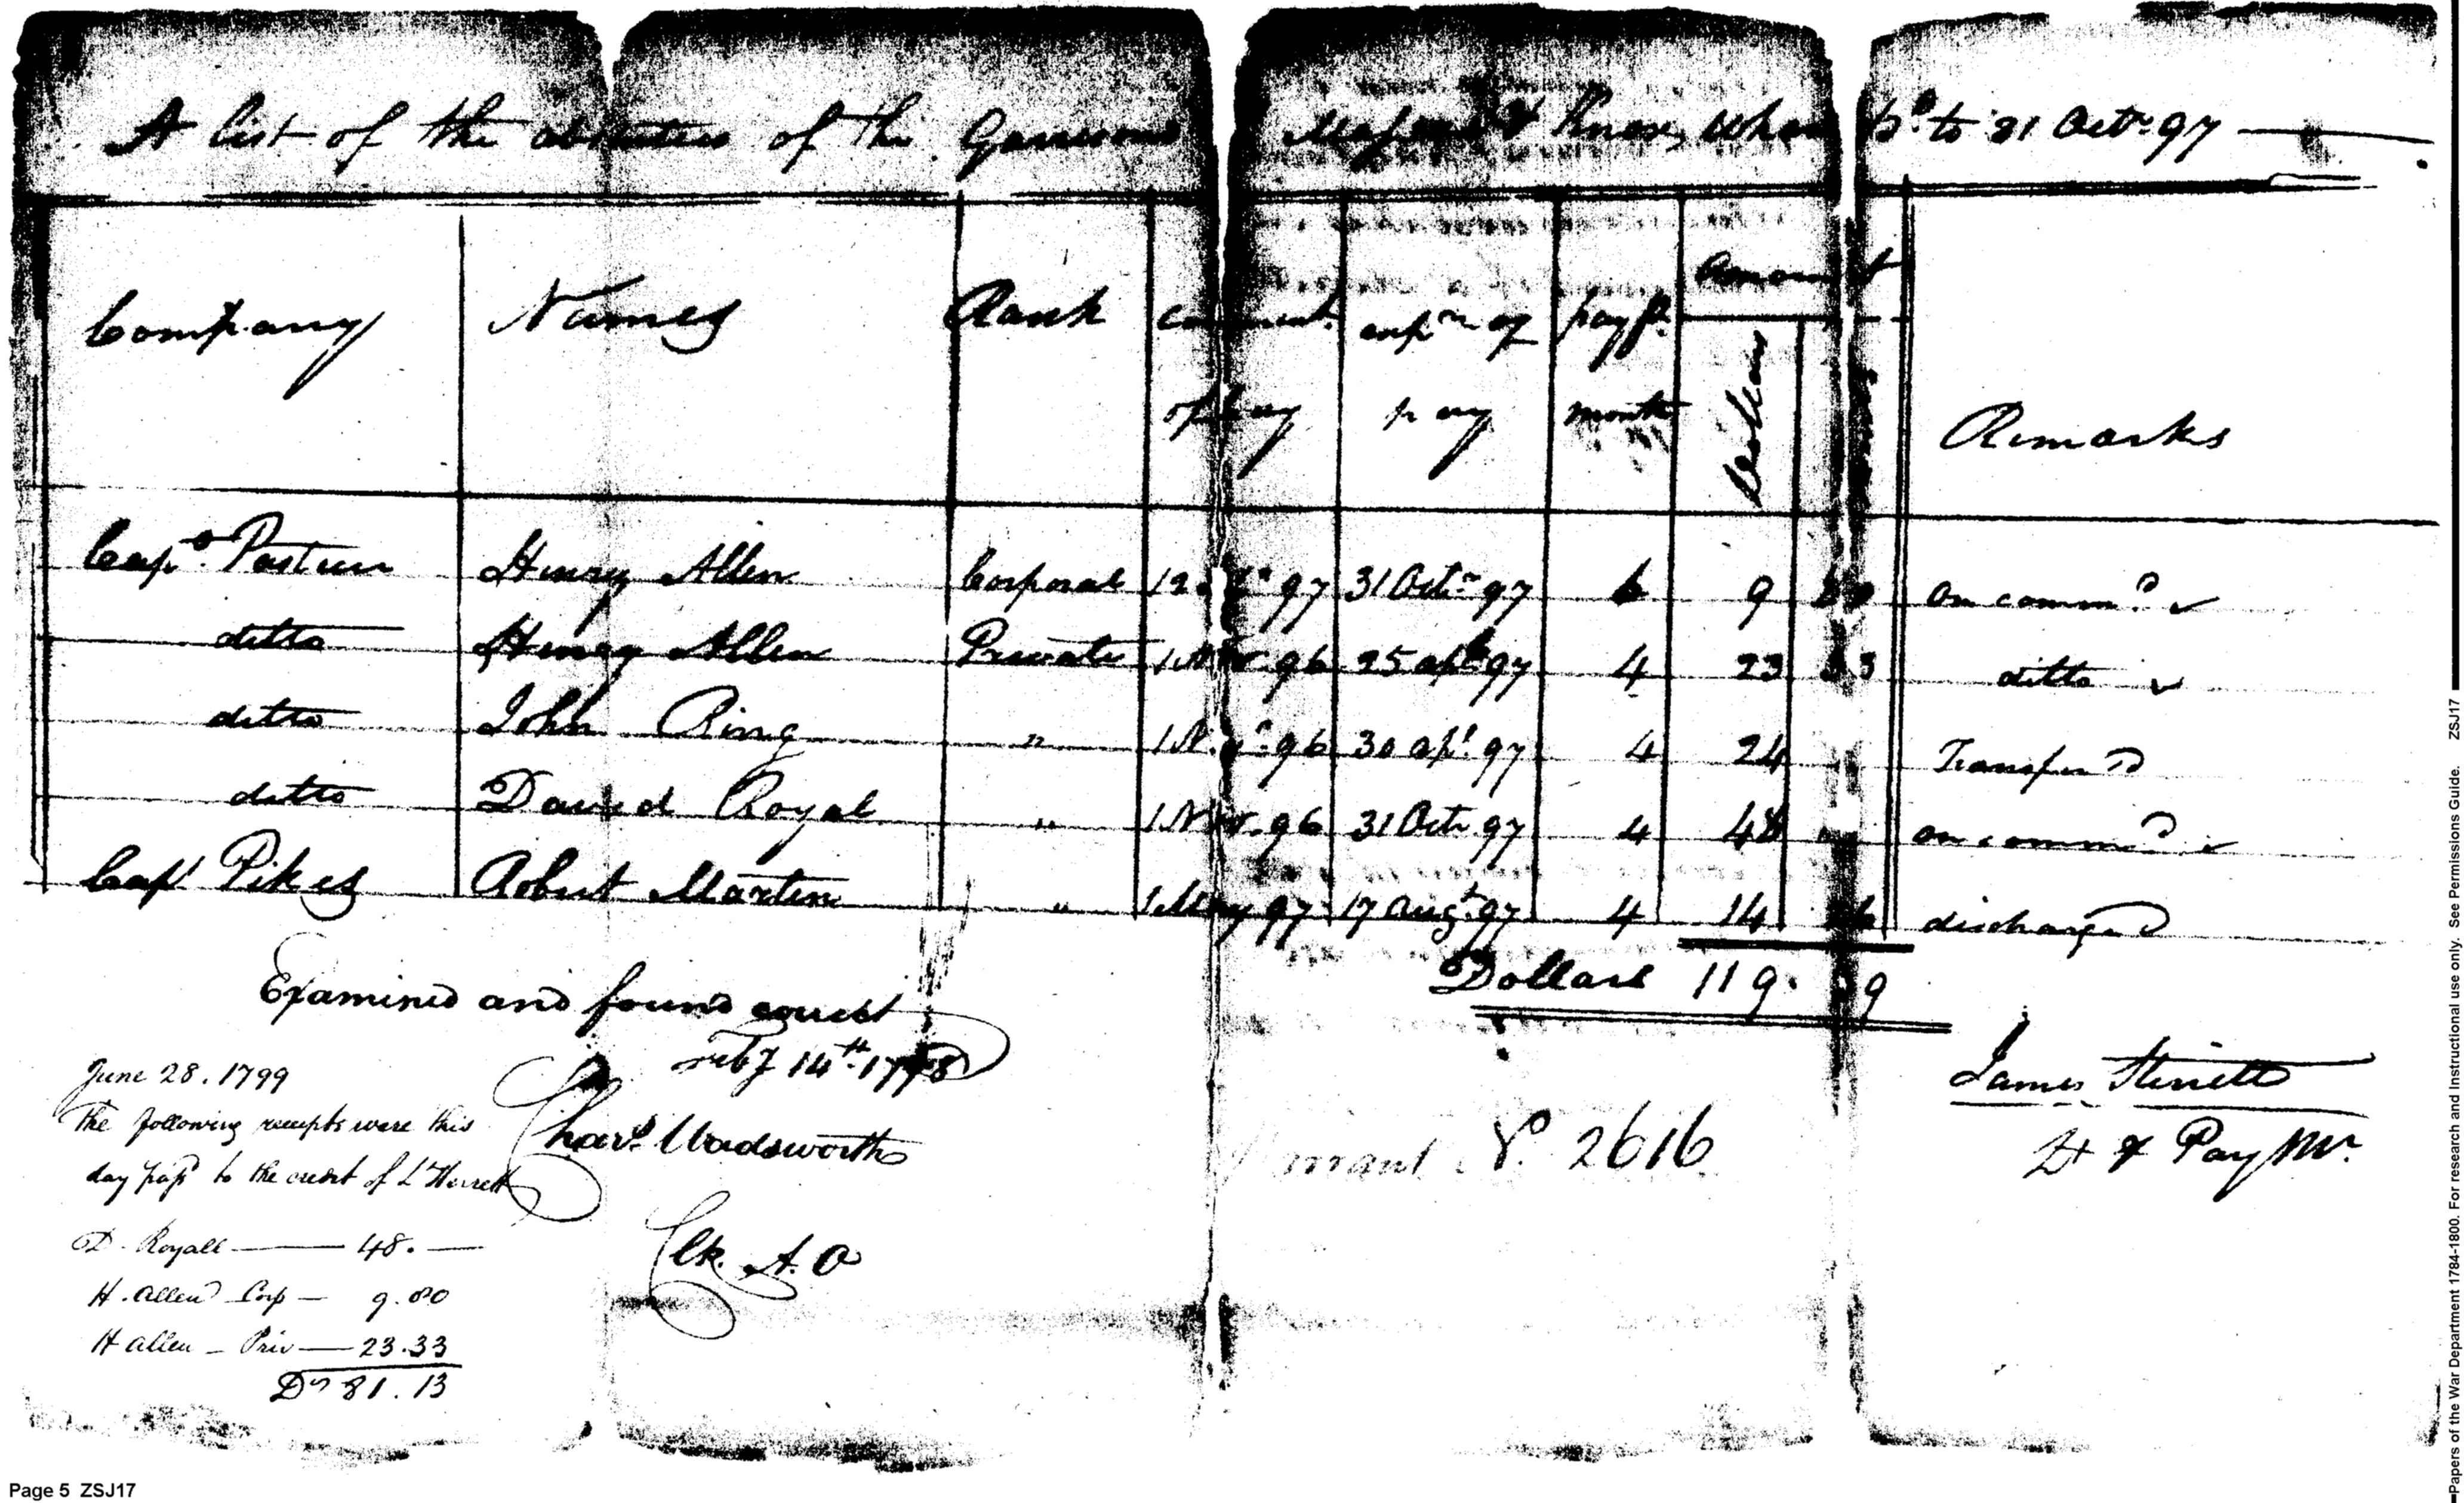 A list of the absentees of the Garrisons Massac & Knox, when pd. to 31 Octr. 97
Company Names Rank commencmt. of pay expn of pay pay pr. month Amount Dollars Remarks
Capt. Pasteur Henry Allen Corporal 12 97 31 Octr. 97 6 9 80 on commd.
ditto Henry Allen Private 1 Nov. 96 25 apl 97 4 23 33 ditto
ditto John Ring " 1 Nov. 96 30 apl. 97 4 24 Transferd
ditto David Royal " 1 Nov. 96 31 Octr 97 4 48 on commd.
Capt Pikes Robert Martin " 1 May 97 17 Augt. 97 4 14 26 discharged
Dollars 119. 39
Examined and found correct
feby 14th. 1798
Chas. Wadsworth
Clk. A. O
James Sterrett
Lt & Pay Mr.
Warrant No. 2616
June 28. 1799
The following receipts were this
day pass'd to the credit of Lt Sterrett
D. Royall — 48. —
H. Allen Corp — 9.80
H Allen — Priv — 23.33
Drs 81.13
Page 5 ZSJ17
Papers of the War Department 1784-1800. For research and Instructional use only. See Permissions Guide. ZSJ17